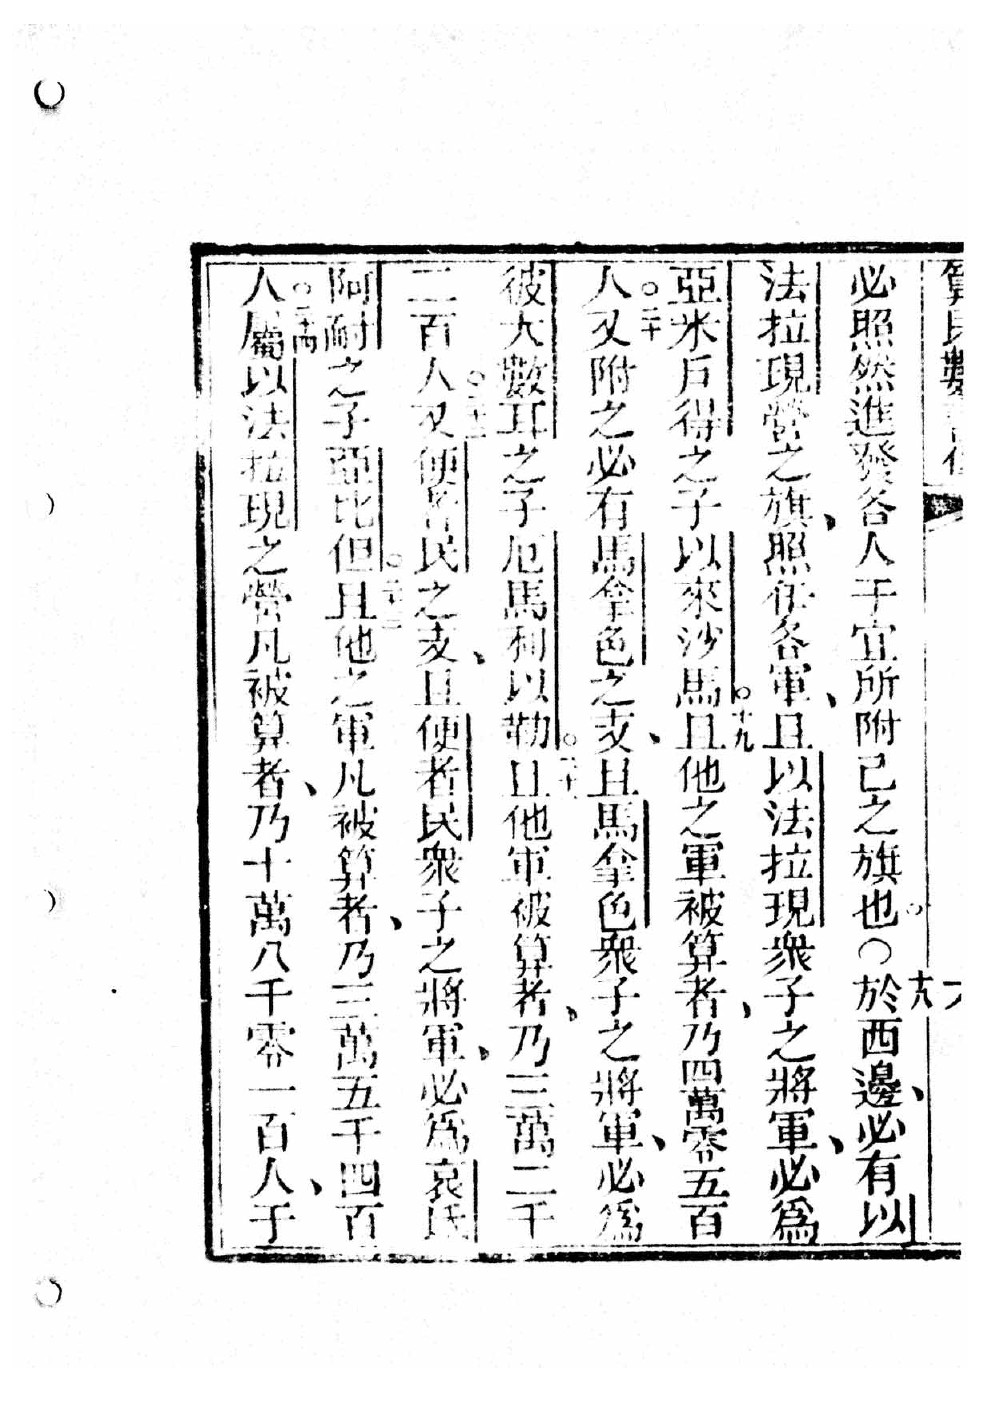 必照然進發各人于宜所附己之旗也○十八於西邊、必有以
法拉現營之旗、照伊各軍、且以法拉現衆子之將軍、必爲
亞米戶得之子以來沙馬○十九且他之軍被算者、乃四萬零五百
人○二十又附之必有馬拿色之支、且馬拿色衆子之將軍、必爲
彼大數耳之子厄馬利以勒○二十一且他軍被算者、乃三萬二千
二百人○二十二又便者民之支、且便者民衆子之將軍、必爲哀氏
阿耐之子亞比但○二十三且他之軍凡被算者、乃三萬五千四百
人○二十四屬以法拉現之營凡被算者、乃十萬八千零一百人、于